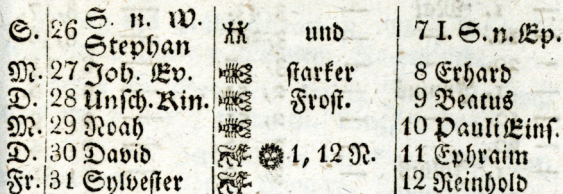 S. 26 S. n. W. Stephan und 7 I. S. n. Ep.
M. 27 Joh. Ev. starker 8 Erhard
D. 28 Unsch. Kin. Frost. 9 Beatus
M. 29 Noah 10 Pauli Eins.
D. 30 David 1, 12 N. 11 Ephraim
Fr. 31 Sylvester 12 Reinhold